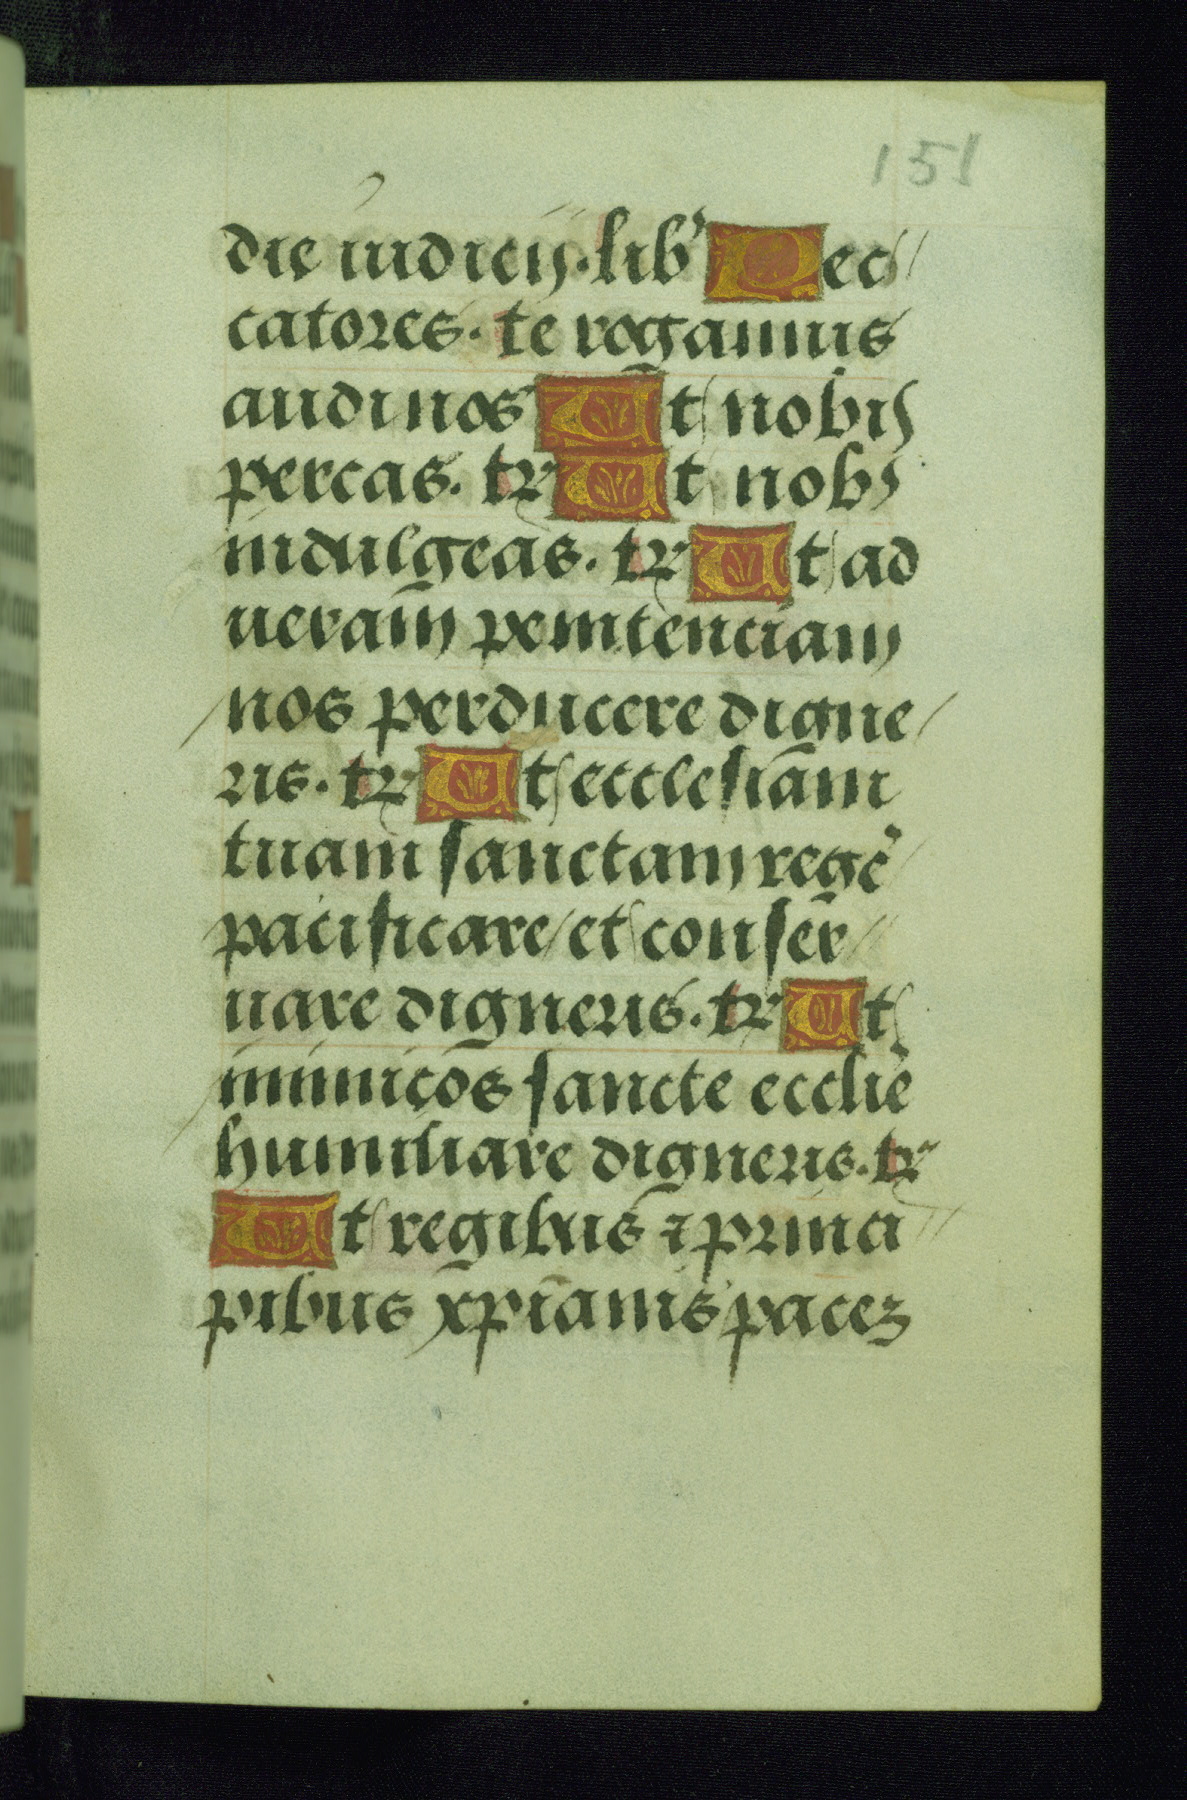 151
die iudicij. lib' Pec
catores. te rogamus
audi nos Ut nobis
percas. tr Ut nobis
indulgeas. tr Ut ad
ueram penitenciam
nos perducere digne
ris. tr Ut ecclesiam
tuam sanctam regē
pacificare et conser
uare digneris. tr Ut
inimicos sancte ecclie
humiliare digneris. tr
Ut regibus ⁊ princi
pibus xpianis pacez